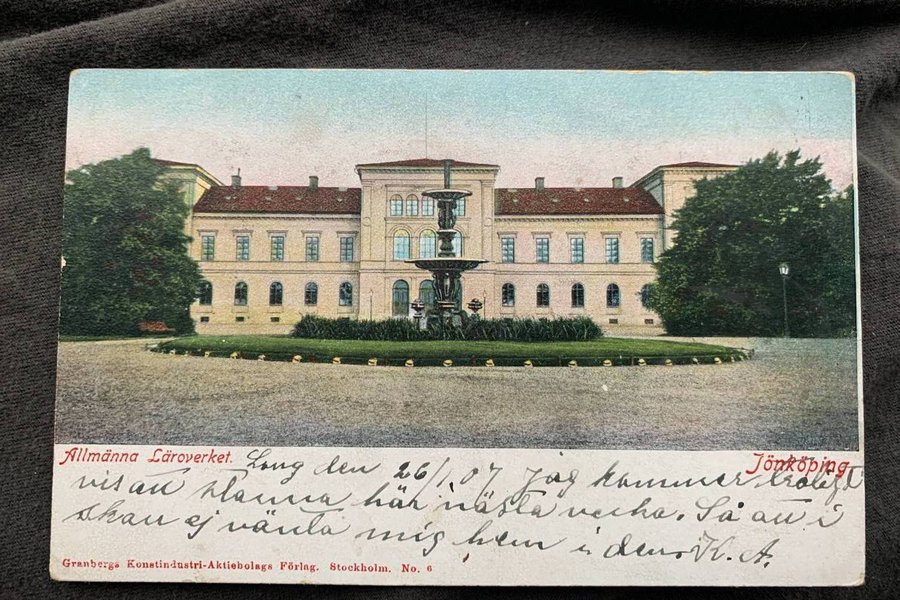 Allmänna Läroverket.
Jönköping.
Lmg den 26/1 07 Jag kommer troligt
vis att stanna här nästa vecka. Så att i
skan ej vänta mig hem i den. K. A.
Granbergs Konstindustri-Aktiebolags Förlag. Stockholm. No. 6